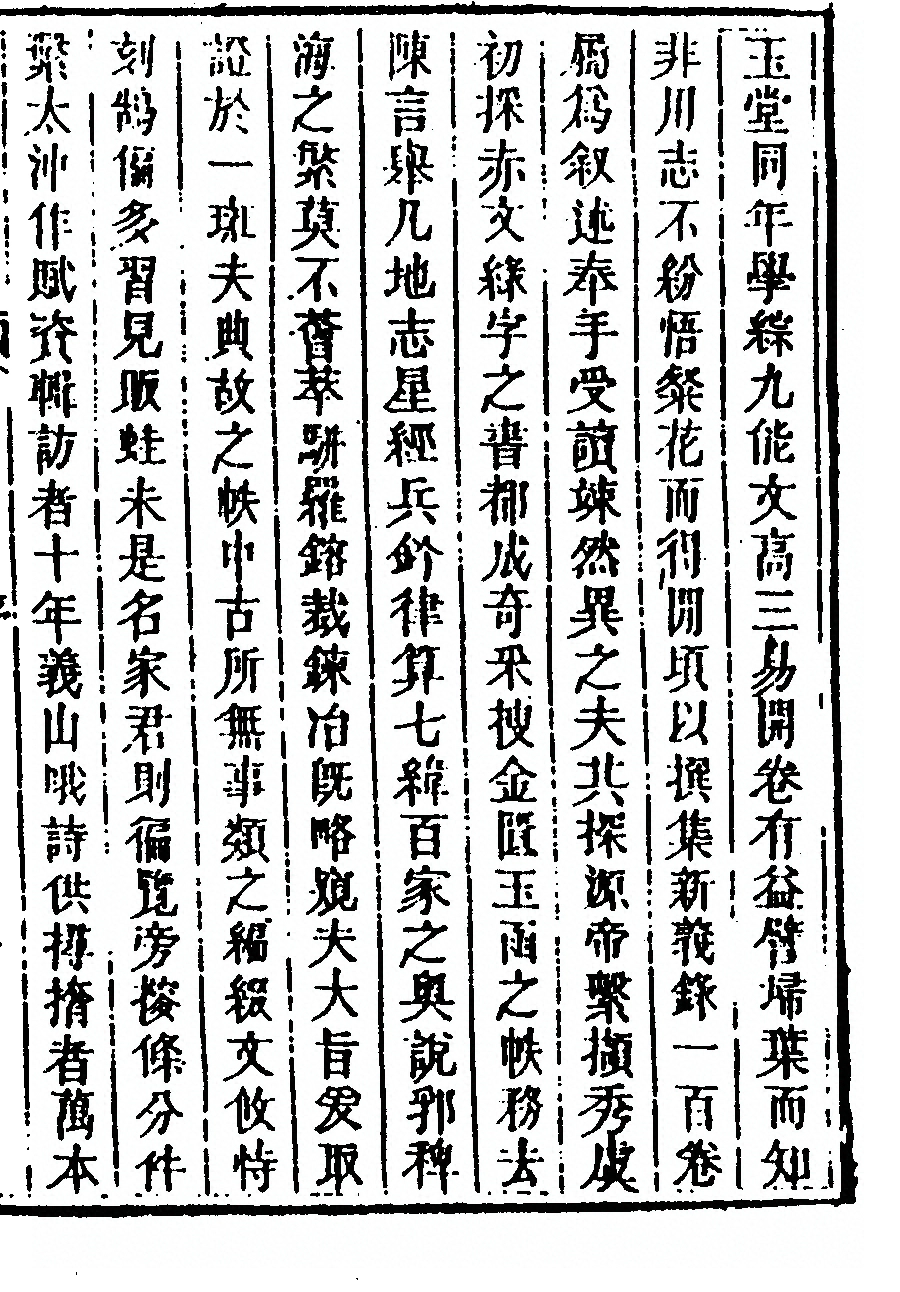 玉堂同年學綜九能文高三易開卷有益譬埽葉而知
非川志不紛悟粲花而得閒頃以撰集新義錄一百卷
屬爲叙述奉手受讀竦然異之夫其探源帝繫擷秀虞
初探赤文綠字之書都成奇采捜金匱玉函之帙務去
陳言舉凡地志星經兵鈐律算七緯百家之奥說郛稗
海之繁莫不薈萃駢羅鎔裁鍊冶旣略窺夫大旨爰取
證於一斑夫典故之帙中古所無事類之編綴文攸恃
刻鵠偏多習見販蛙未是名家君則徧覽旁稜條分件
繫太沖作賦資輯訪者十年義山哦詩供撏撦者萬本